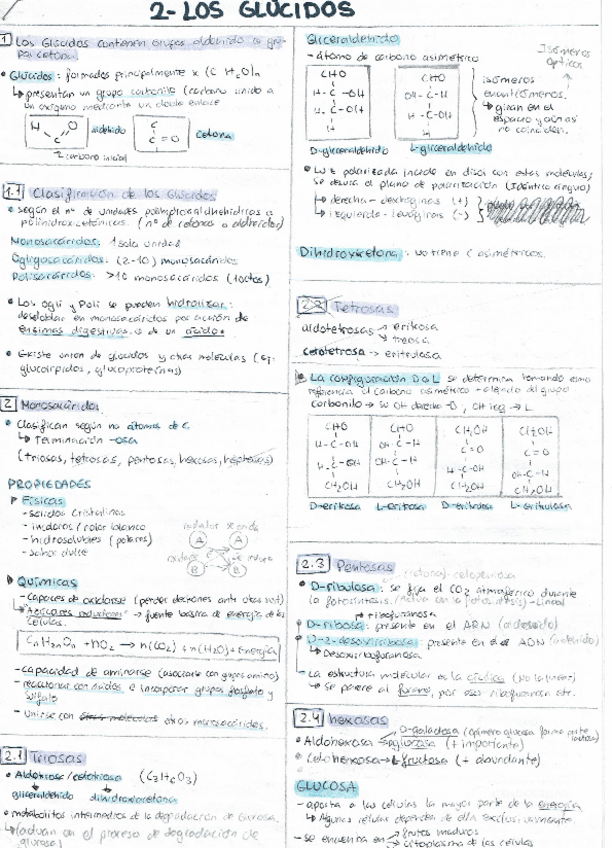 2-LOS GLÚCIDOS
1 Los Glúcidos contienen grupos aldehído o gru-
po cetona.
• Glúcidos: formados principalmente x (C H2O)n
↳ presentan un grupo carbonilo (carbono unido a
un oxígeno mediante un doble enlace
H O
C
aldehído
C
C = O
C
cetona
1.1 Clasificación de los Glúcidos
• según el nº de unidades
(nº de cetona o aldehídos)
Monosacáridos: 1 sola unidad
Ogligosacáridos: (2-10) monosacáridos
Polisacáridos: >10 monosacáridos
• Los ogli y Poli se pueden hidrolizar:
desdoblar en monosacáridos por acción de
enzimas digestivas o de un ácido.
• Existe unión de glúcidos y otras moléculas (ej:
glucolípidos, glucoproteínas)
2 Monosacáridos
• Clasifican según no átomos de C.
↳ Terminación -osa
(triosas, tetrosas, pentosas, hexosas, heptosas)
PROPIEDADES
▸ Físicas
- sólidos cristalinos
- incoloros / color blanco
- hidrosolubles (polares)
- sabor dulce
A A
B B
▸ Químicas
- Capaces de oxidarse (perder electrones ante otras sust)
↳ Azúcares reductores → fuente básica de energía de las
células.
CnH2nOn + nO2 → n(CO2) + n(H2O) + Energía
- capacidad de aminarse (asociarte con grupos amino)
- reaccionar con ácidos e incorporar grupos fosfato y
sulfato
- Unirse con otros monosacáridos.
2.1 Triosas
• Aldotriosa/cetotriosa (C3H6O3)
gliceraldehído dihidroxiacetona
• metabolitos intermedios de la degradación de Glucosa.
↳ (actúan en el proceso de degradación de
glucosa)
Gliceraldehído
- átomo de carbono asimétrico
Isómeros
ópticos
CHO
H - C - OH
H - C - OH
H
CHO
OH - C - H
H - C - OH
H
isómeros
enantiómeros.
↳ giran en el
espacio y aún así
no coinciden.
D-gliceraldehído L-gliceraldehído
• Luz polarizada incide en disol con estas moléculas;
se desvía el plano de polarización (Idéntico ángulo)
↳ derecha - dextrógiras (+)
↳ izquierda - levógiras (-)
Dihidroxicetona: no tiene C asimétricos.
2.2 Tetrosas
aldotetrosas → eritrosa
→ treosa
cetotetrosa → eritrulosa
▸ La configuración D o L se determina tomando como
referencia el carbono asimétrico + alejado del grupo
carbonilo → si OH derecha - D, OH izq → L
CHO
H - C - OH
H - C - OH
CH2OH
CHO
OH - C - H
OH - C - H
CH2OH
CH2OH
C = O
H - C - OH
CH2OH
CH2OH
C = O
OH - C - H
CH2OH
D-eritrosa L-eritrosa D-eritrulosa L-eritrulosa
2.3 Pentosas
• D-ribulosa: se fija el CO2 atmosférico durante
la fotosíntesis.
ribofuranosa
D-ribosa: presente en el ARN (aldehído)
D-2-desoxirribosa: presente en el ADN (aldehído)
↳ Desoxirribofuranosa
- La estructura molecular es la cíclica (no la lineal)
→ se parece al furano, por eso ribofuranosa etc.
2.4 hexosas
• Aldohexosa → D-galactosa (epímero glucosa forma parte lactosa)
→ glucosa (+ importante)
• Cetohexosa → fructosa (+ abundante)
GLUCOSA
- aporta a las células la mayor parte de la energía
↳ Algunas células dependen de ella exclusivamente
- se encuentra en → frutos maduros
→ citoplasma de las células